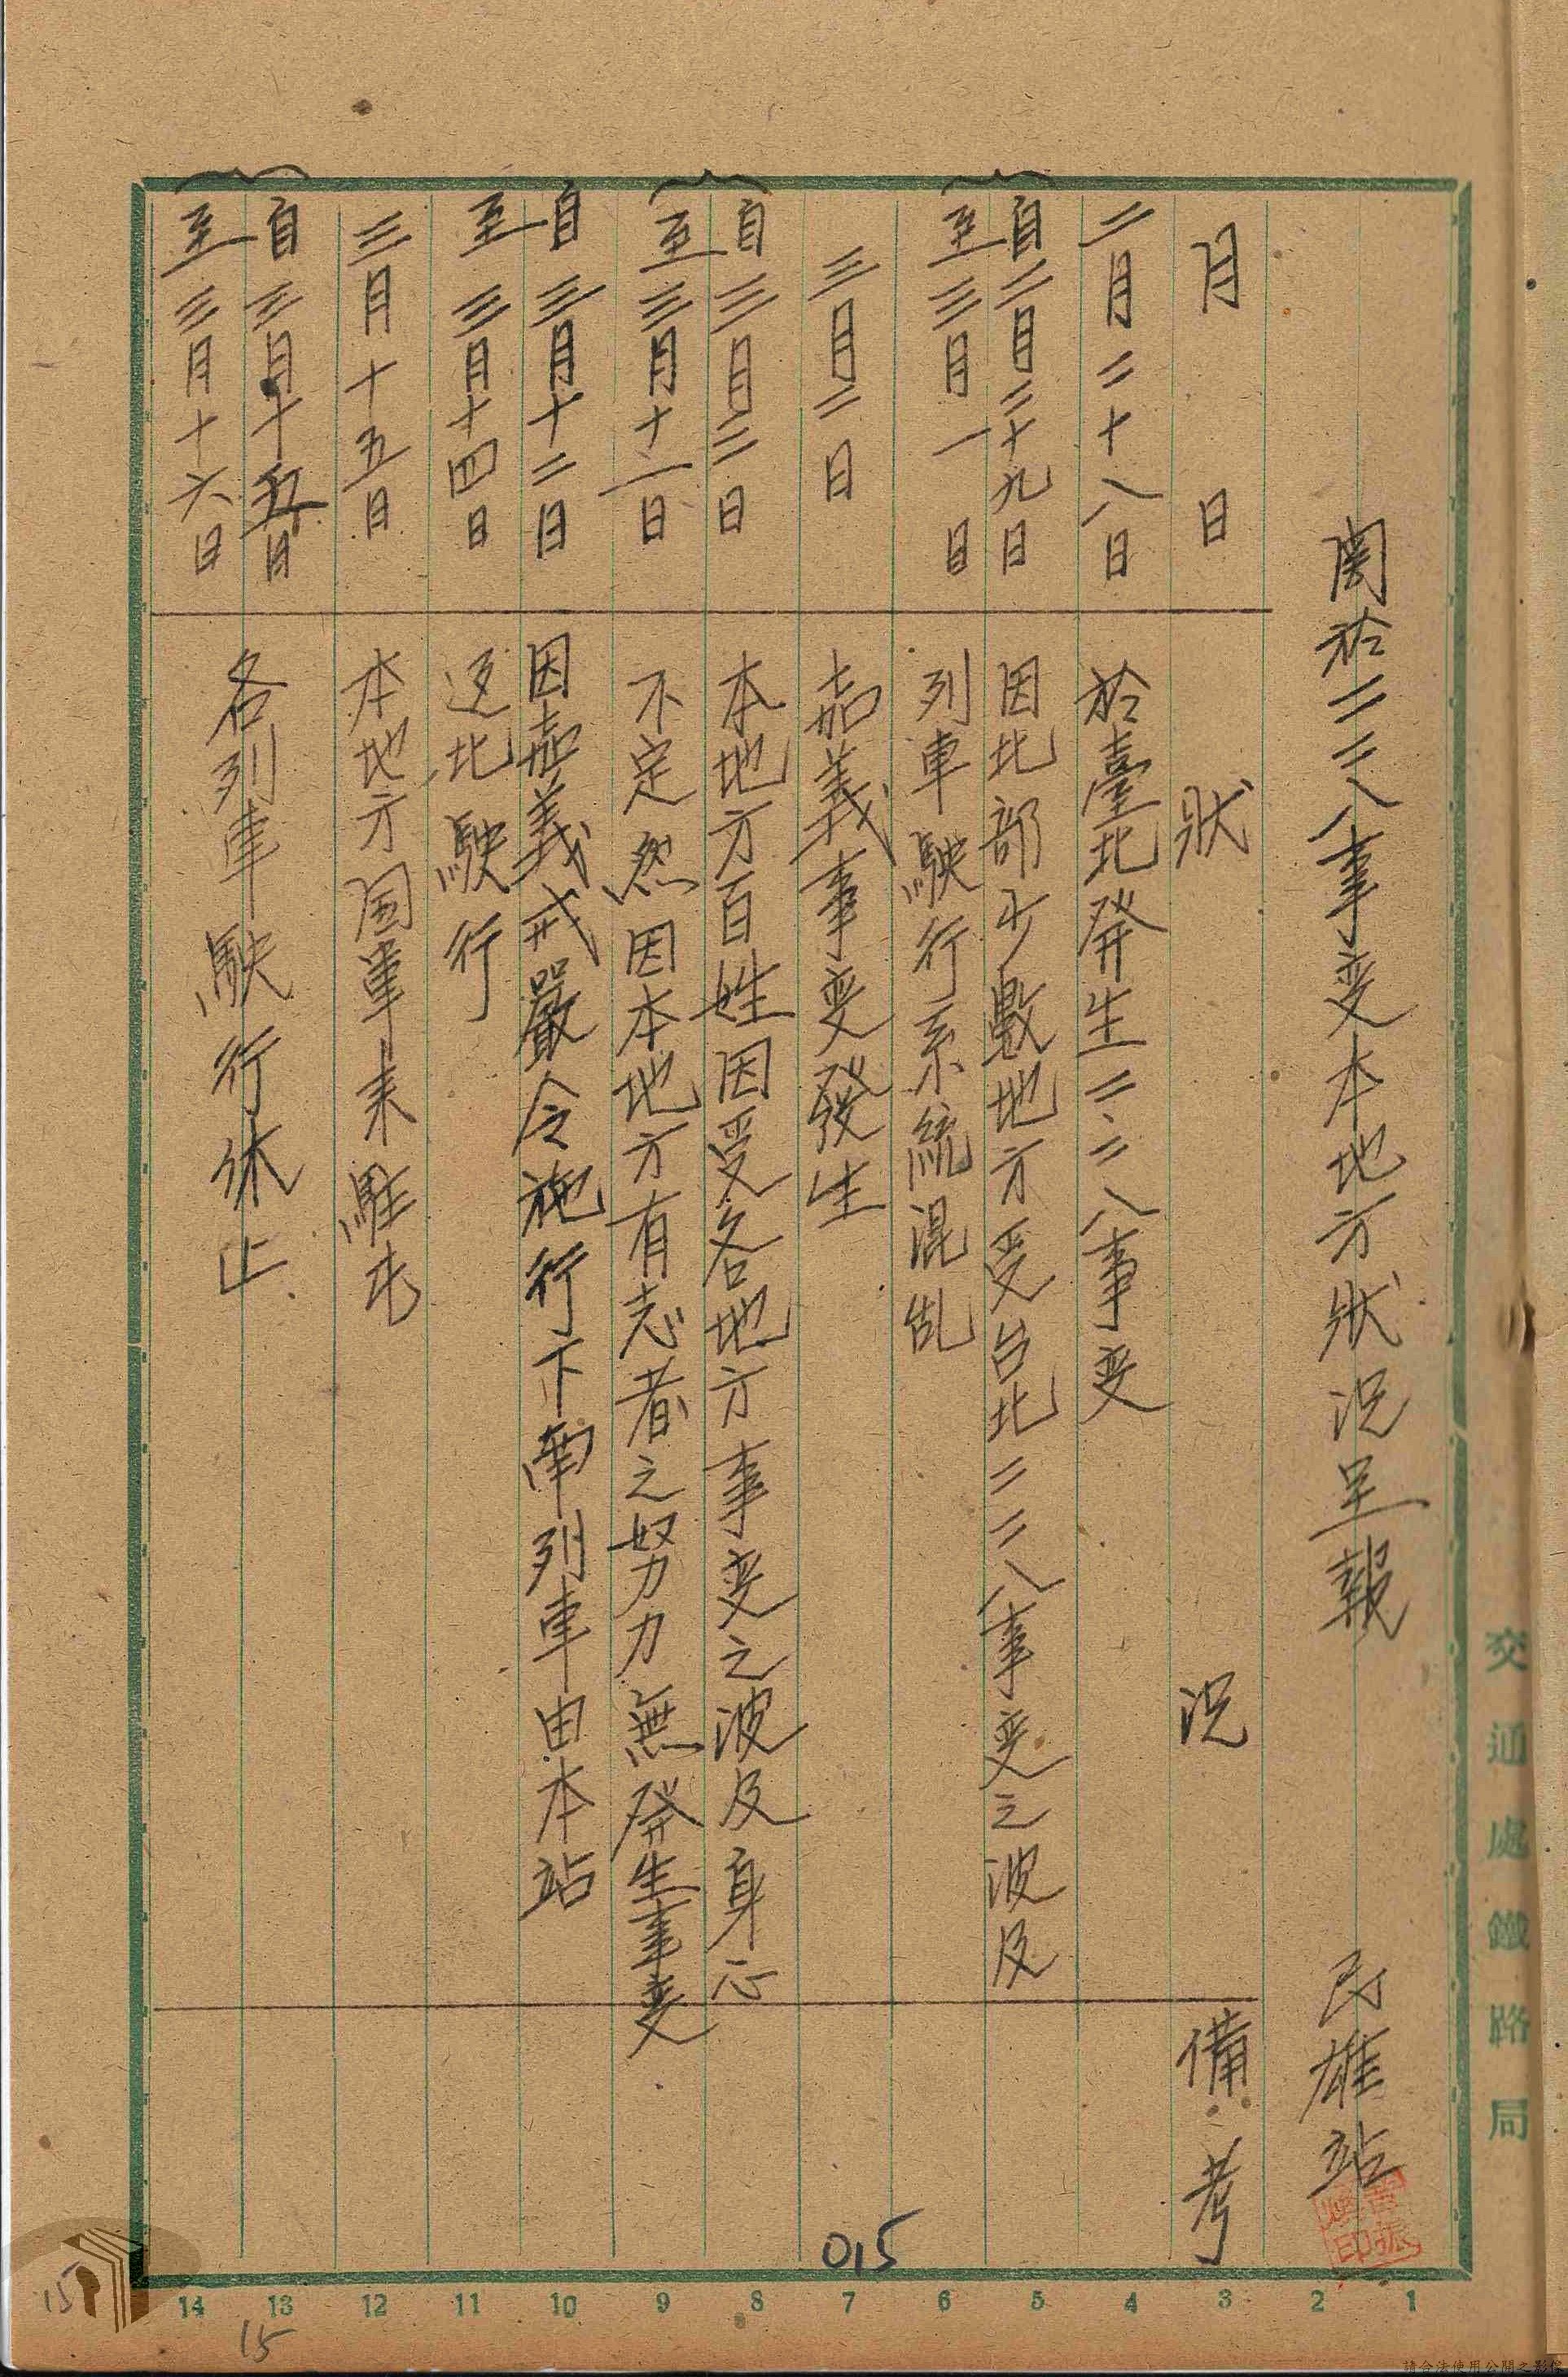 交通處鐵路局
關於二二八事変本地方狀況呈報　民雄站
月日　狀況　備考
二月二十八日　於臺北発生二、二八事变
自二月二十九日　因北部少數地方受台北二二八事変之波及
至三月一日　列車駛行系統混乱
三月二日　嘉義事変發生
自三月二日　本地方百姓因受各地方事変之波及身心
至三月十一日　不定然因本地方有志者之努力無発生事変
自三月十二日　因嘉義戒嚴令施行下南列車由本站
至三月十四日　返北駛行
三月十五日　本地方国軍来駐屯
自三月十五日
至三月十六日　各列車駛行休止
015
14 13 12 11 10 9 8 7 6 5 4 3 2 1
15
15
請合法使用公開之影像